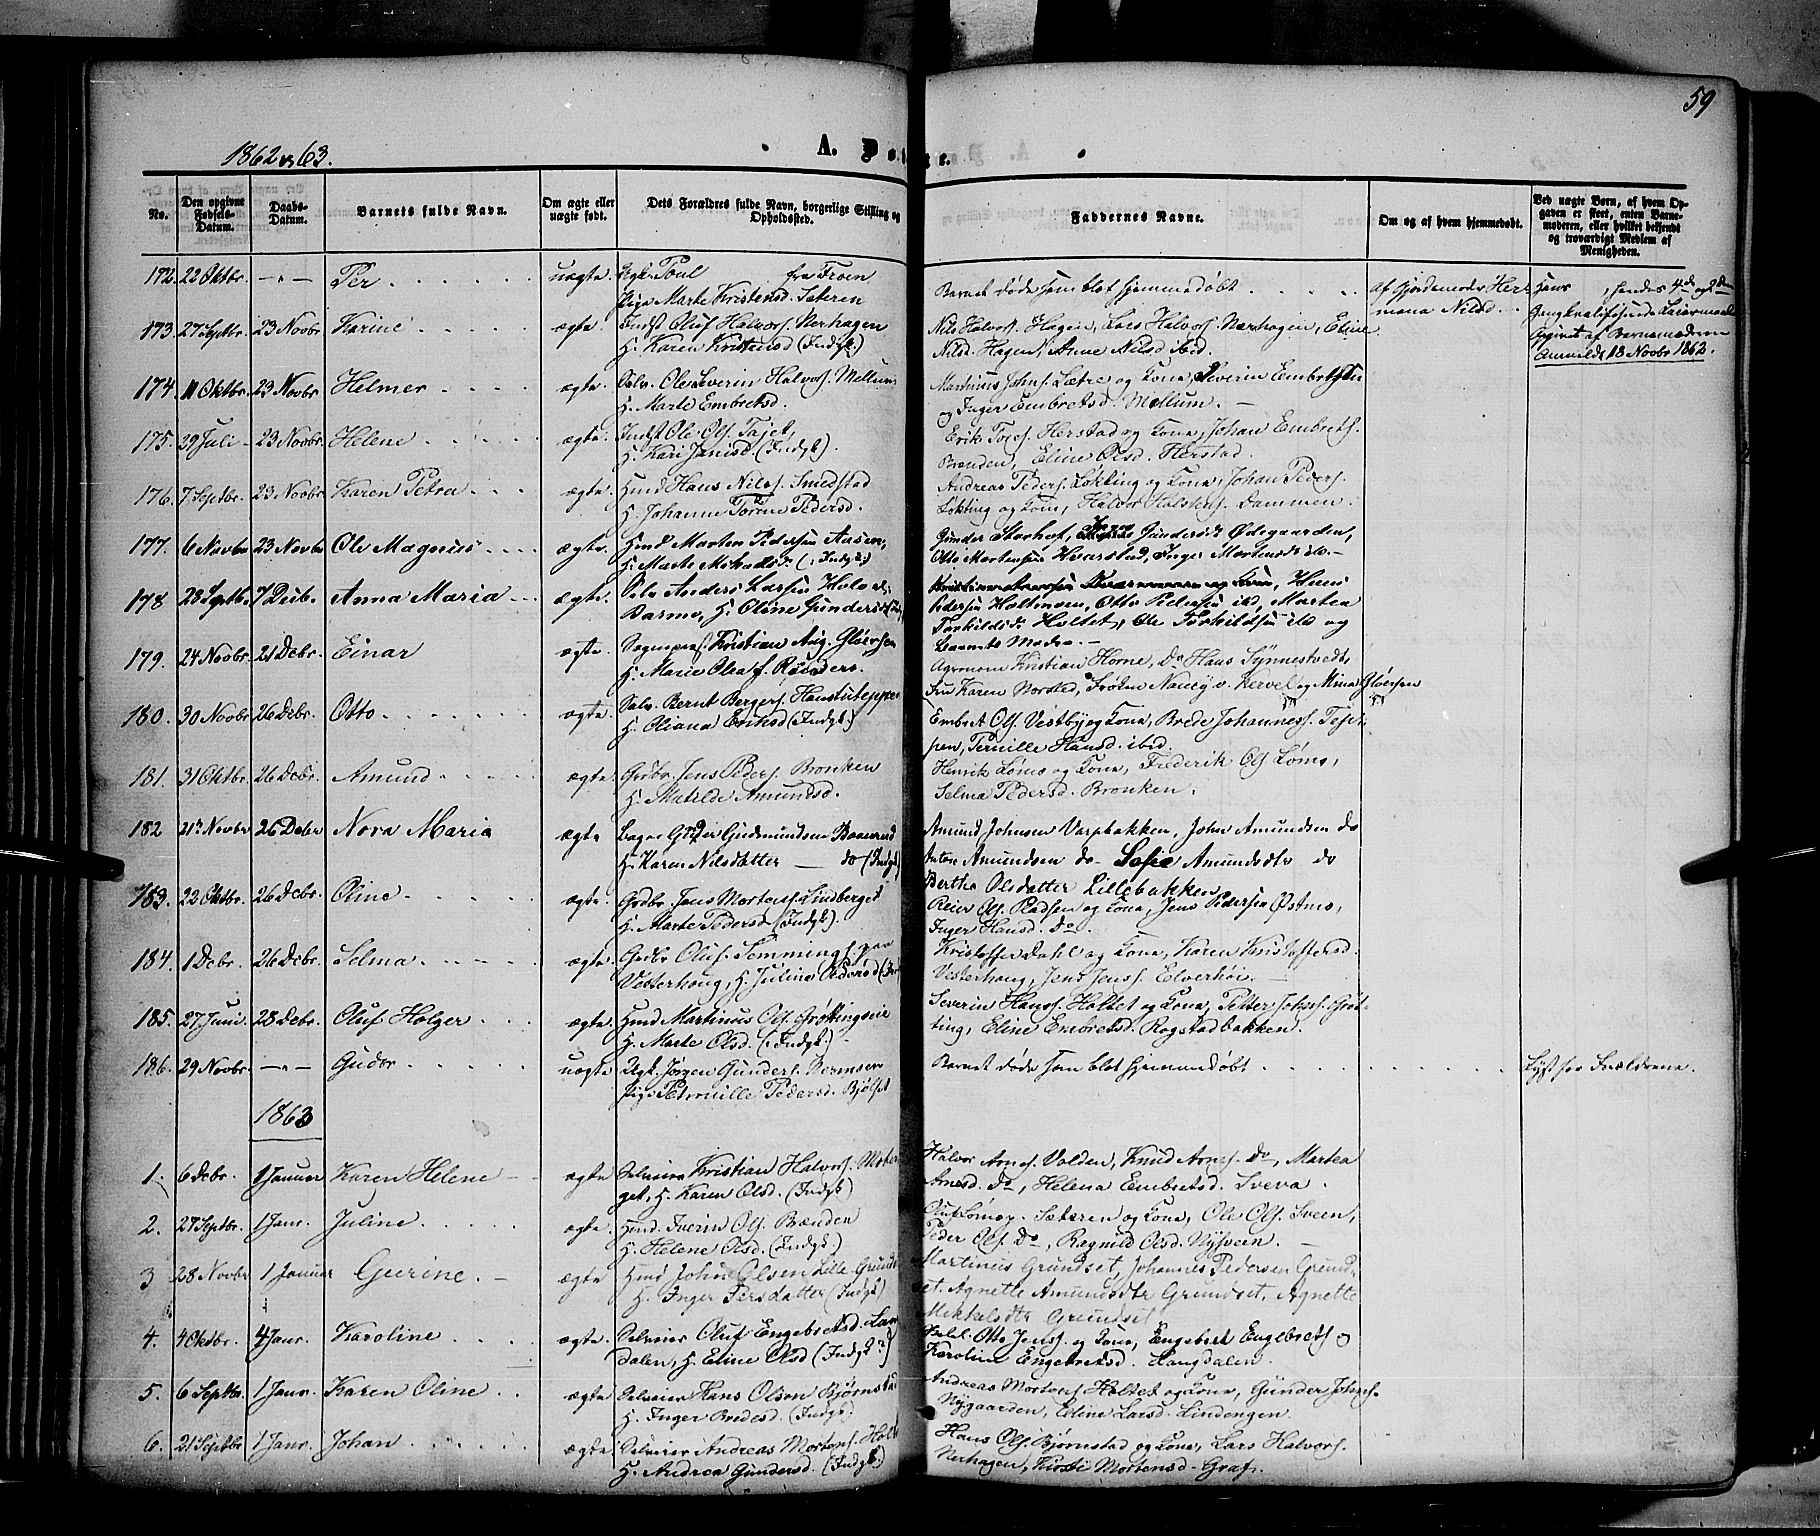 59
1862 & 63.
A. Dø
te.
No.
Den opgivne Fødsels-Datum.
Daabs-Datum.
Barnets fulde Navn.
Om ægte eller uægte født.
Dets Forældres fulde Navn, borgerlige Stilling og Opholdssted.
Faddernes Navne.
Om og af hvem hjemmedøbt.
Ved uægte Børn, af hvem Opgaven er skeet, enten Barnemoderen, eller hvilket bekjendt og troværdigt Medlem af Menigheden.
172. 22 Oktbr. —"— Per uægte. Ugk. Poul fra Froen
Pige Marte Kristensd. Sæteren
Barnet døde som blot hjemmedøbt
af Gjordemoder Hermana Nilsd.
Hans, hendes 4de og
Opgivet af Barnemoderen
Anmeldt 13 Novbr 1862.
173. 27 Septbr. 23 Novbr Karine ægte. Indst Oluf Halvors. Nerhagen
H. Karen Kristensd. (Indgk.)
Nils Halvors. Hagen, Lars Halvors. Nærhagen, Eline
Nilsd. Hagen, Anne Nilsd ibid.
174. 11 Oktbr. 23 Novbr Helmer ægte. Selv. Ole Severin Halvors. Mellum
H. Marte Embretsd.
Martinus Johns. Lætre og Kone, Severin Embretsen
og Inger Embretsd. Mellum.
175. 29 Juli 23 Novbr. Helene ægte. Indst Ole Ols. Tajet,
H. Kari Jansd. (Indgk).
Erik Tops. Herstad og Kone, Johan Embrets.
Brænden, Eline Olsd. Herstad.
176. 7 Septbr. 23 Novbr. Karen Petra ægte. Hmd Hans Nils. Smedstad
H. Johanne Torine Pedersd.
Andreas Peders. Løkting og Kone, Johan Peders.
Løkting og Kone, Halvor Holstens. Dammen.
177. 6 Novbr 23 Novbr Ole Magnus ægte. Hmd Morten Pedersen Aasen,
H. Marte Mikaelsd. (Indgk.)
Gunder Storhof, Inger Gundersdt Ødegaarden,
Otto Mortensen Hvarstad, Inger Mortensdt ibd.
178 28 Septb. 7 Decb. Anna Maria ægte. Selv Anders Larsen Holo
H. Oline Gunders
Hans
Pedersen Holtmoen, Otto Pedersen ibd, Martea
Torkildsdt Holtet, Ole Torkildsen ibd og
Barnets Moder.
179. 24 Novbr. 21 Decbr. Einar ægte. Sogneprest Kristian Aug. Gløersen
H. Marie Olea f. Rynders.
Agronom Kristian Horne, Do Hans Synnestvedt,
Fru Karen Norsted, Frøken Nancy v. Kervel og Mina Gløersen
180. 30 Novbr 26 Decbr. Otto ægte. Selv. Bernt Bergers. Haustuteppen
H. Oliana Eriksd (Indgk.)
Embret Ols. Vestby og Kone, Brede Johannes. Tejep-
pen, Pernille Hansd. ibid.
181. 31 Oktbr. 26 Decbr. Amund ægte. Grdbr. Jens Peders. Bronken
H. Matilde Amundsd.
Henrik Lømo og Kone, Frederik Ols Lømo,
Selma Pedersd. Bronken.
182 21 Novbr 26 Decbr Nora Maria ægte Bager Guder Gudmundsen
H. Karen Nilsdatter — do (Indgk)
Amund Johnsen Varpbakken, John Amundsen do
Anton Amundsen do Sofie Amundsdtr do
Bertha Olsdatter Lillebakken
183. 22 Oktbr. 26 Decbr. Oline ægte. Grdbr. Jens Mortens. Lindberget
H. Marte Pedersd (Indgk.)
Reier Ols. Radsen og Kone, Jens Pedersen Østmo,
Inger Hansd. do.
184. 1 Decbr. 26 Decbr. Selma ægte. Grdbr Oluf Semmings. paa
Vesterhaug, H. Juline Pedersd
Kristoffer Dahl og Kone, Karen Kristoffersd.
Vesterhaug, Jens Jens. Elverhøi.
185. 27 Juni 28 Decbr. Oluf Holger ægte. Hmd Martinus Ols. Grøttingseie
H. Marte Olsd. (Indgk.)
Severin Hans. Holtet og Kone, Petter Johs. Grøt-
ting, Eline Embretsd. Rogstadbakken.
186. 29 Novbr. —"— Gudbr uægte. Ugk. Jørgen Gunders. Bermsen
Pige Petronille Pedersd. Bjølset
Barnet døde som blot hjemmedøbt
Lyst for Forældrene.
1863
1. 6 Decbr. 1 Januar Karen Helene ægte. Selveier Kristian Halvors. Moberget, H. Karen Olsd. (Indgk)
Halvor Arnes. Volden, Knud Arnes. Do, Martea
Arnesd. Do, Helena Embretsd. Sveva.
2. 27 Septbr. 1 Janr. Juline ægte. Hmd. Iverin Ols. Brænden
H. Helene Olsd. (Indgk)
Oluf Sæteren og Kone, Ole Ols. Sveen,
Peder Ols. Do, Ragnild Olsd. Nysvern.
3 28 Novbr 1 Januar Geerine. ægte. Hmd John Olsen Lille Grundset
H. Inger Persdatter (Indgk)
Martinus Grundset, Johannes Pedersen Grund-
set. Agnette Amundsdtr Grundset, Agnette
Mikkelsdtr Grundset
4. 4 Oktbr. 4 Janr. Karoline ægte. Selveier Oluf Engebretsd. Lan
dalen, H. Eline Olsd (Indgk.)
Otto Jens. og Kone, Engebret Engebrets og
Karoline Engebretsd. Langdalen.
5. 6 Septbr. 1 Janr. Karen Oline ægte. Selveier Hans Olsen Bjørnstad
H. Inger Bredesd. (Indgk.)
Andreas Mortens. Holtet og Kone, Gunder Johns.
Nygaarden, Eline Larsd. Lindengen.
6. 21 Septbr 1 Janr. Johan ægte. Selveier Andreas Mortens. Holt
H. Andrea Gundersd. (Indgk.)
Hans Ols. Bjørnstad og Kone, Lars Halvors.
Nerhagen, Kirsti Mortensd. Graf.